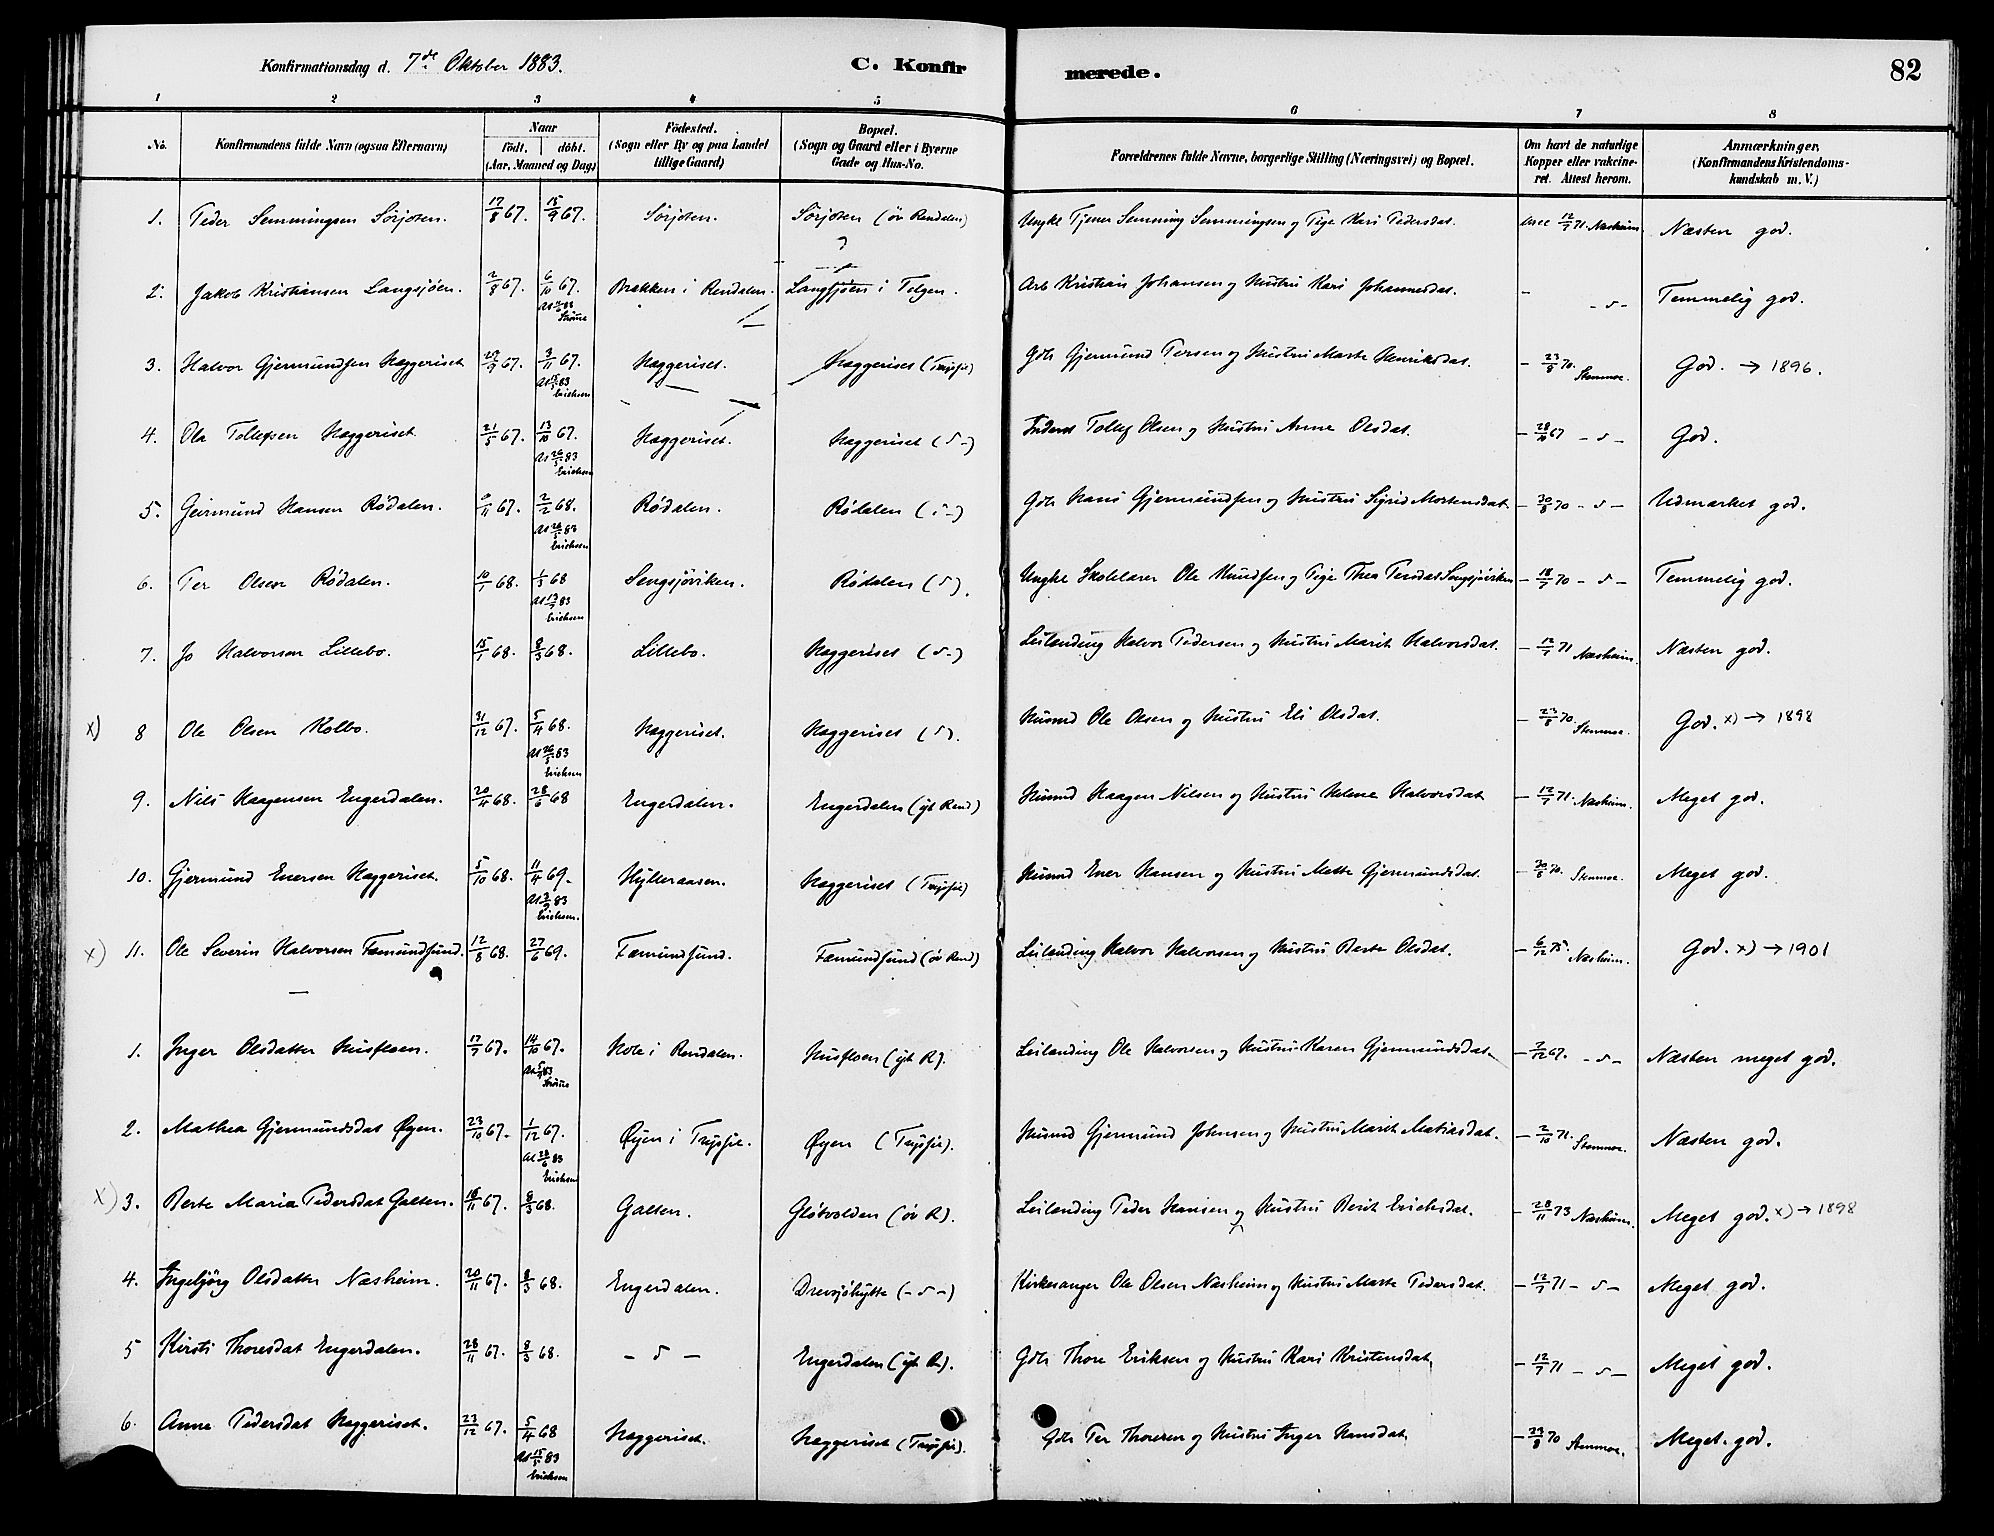 Konfirmationsdag d. 7de Oktober 1883. C. Konfirmerede. 82
1 2 3 4 5 6 7 8
No. Konfirmandens fulde Navn (ogsaa Efternavn) Naar födt. döbt. (Aar, Maaned og Dag) Födested. (Sogn eller By og paa Landet tillige Gaard) Bopæl. (Sogn og Gaard eller i Byerne Gade og Hus-No. Forældrenes fulde Navne, borgerlige Stilling (Næringsvei) og Bopæl. Om havt de naturlige Kopper eller vakcineret. Attest herom. Anmærkninger, (Konfirmandens Kristendomskundskab m. V.)
1. Peder Semmingsen Sörjoten. 17/8 67. 15/9 67. Sörjoten. Sörjoten (öv Rendalen) Ungkl Tjener Semming Semmingsen og Pige Kari Pedersdat. vacc 12/7 71. Næsheim. Næsten god.
2. Jakob Kristiansen Langsjöen. 2/8 67. 6/10 67. Brækken i Rendalen. Langsjöen i Tolgen. Arb Kristian Johansen og Hustru Kari Johannesdat. - - 〃 - Temmelig god.
At 83 Ström
3. Halvor Gjermundsen Hæggeriset 29/9 67. 3/11 67. Hæggeriset. Hæggeriset (Trysil) Gdb Gjermund Persen og Hustru Marte Henriksdat. - 23/8 70. Stenmoe. God. → 1896.
At 15/5 83 Erichsen
4. Ola Tollefsen Hæggeriset 21/5 67. 13/10 67. Hæggeriset. Hæggeriset (〃) Inderst Tollef Olsen og Hustru Anne Olsdat. - 28/10 67 - 〃 - God.
At 26/5 83 Erichsen
5. Geirmund Hansen Rödalen. 9/11 67. 2/2 68. Rödalen. Rödalen (〃) Gdb Hans Gjermundsen og Hustru Sigrid Mortensdat - 30/8 70 - 〃 - Udmærket god.
At 26/5 83 Erichsen
6. Per Olsen Rödalen. 10/1 68. 1/3 68 Sengsjöviken. Rödalen (〃). Ungkl Skolelærer Ole Knudsen og Pige Thea Persdat Sengsjöviken - 18/7 70 - 〃 - Temmelig god.
At 13/7 83 Erichsen
7. Jo Halvorsen Lillebo. 15/1 68. 8/3 68. Lillebo. Hæggeriset (〃) Leilænding Halvor Pedersen og Hustru Marit Halvorsdat. - 12/7 71 Næsheim. Næsten god.
x) 8 Ole Olsen Kolbo. 31/12 67. 5/4 68. Hæggeriset. Hæggeriset (〃). Husmd Ole Olsen og Hustru Eli Olsdat. - 23/8 70 Stenmoe. God. x) → 1898
At 26/5 83 Erichsen
9. Nils Haagensen Engerdalen. 20/4 68. 28/6 68 Engerdalen. Engerdalen (yt Rend) Husmd Haagen Nilsen og Hustru Helene Halvorsdat - 12/7 71. Næsheim. Meget god.
10. Gjermund Enersen Hæggeriset. 5/10 68. 11/4 69. Hylleraasen. Hæggeriset (Trysil) Husmd Ener Hansen og Hustru Mette Gjermundsdat. - 30/8 70. Stenmoe. Meget god.
At 83 Erichsen.
x) 11. Ole Severin Halvorsen Fæmundsund. 12/8 68. 27/6 69. Fæmundsund. Fæmundsund (öv Rend) Leilænding Halvor Halvorsen og Hustru Berte Olsdat. - 6/12 75. Næsheim. God. x) → 1901
1. Inger Olsdatter Husfloen. 17/7 67. 14/10 67. Hole i Rendalen. Husfloen (yt R). Leilænding Ole Halvorsen og Hustru Karen Gjermundsdat. - 2/12 67. - 〃 - Næsten meget god.
At 83 Ström
2. Mathea Gjermundsdat Øyen. 23/10 67. 1/12 67. Øyen i Trysil. Øyen (Trysil). Husmd Gjermund Johnsen og Hustru Marit Matiasdat. - 2/10 71. Stenmoe. Næsten god.
At 28/6 83 Erichsen
x) 3. Berte Maria Pedersdat Galten. 16/11 67. 8/3 68. Galten. Glötvolden (öv R). Leilænding Peder Hansen og Hustru Berit Erichsdat. - 28/11 73 Næsheim. Meget god. x) → 1898
4. Ingebjörg Olsdatter Næsheim. 20/11 67. 8/3 68. Engerdalen. Drevsjöhytte (- 〃 -) Kirkesanger Ole Olsen Næsheim og Hustru Marte Pedersdat. - 12/7 71 - 〃 - Meget god.
5 Kirsti Thoresdat Engerdalen. 28/11 67. 8/3 68. - 〃 - Engerdalen (yt R). Gdb Thore Eriksen og Hustru Kari Kristensdat. - 12/7 71 - 〃 - Meget god.
6. Anne Pedersdat Hæggeriset. 23/12 67. 5/4 68 Hæggeriset. Hæggeriset (Trysil). Gdb Per Thoresen og Hustru Inger Hansdat. - 23/8 70 Stenmoe. Meget god.
At 15/5 83 Erichsen